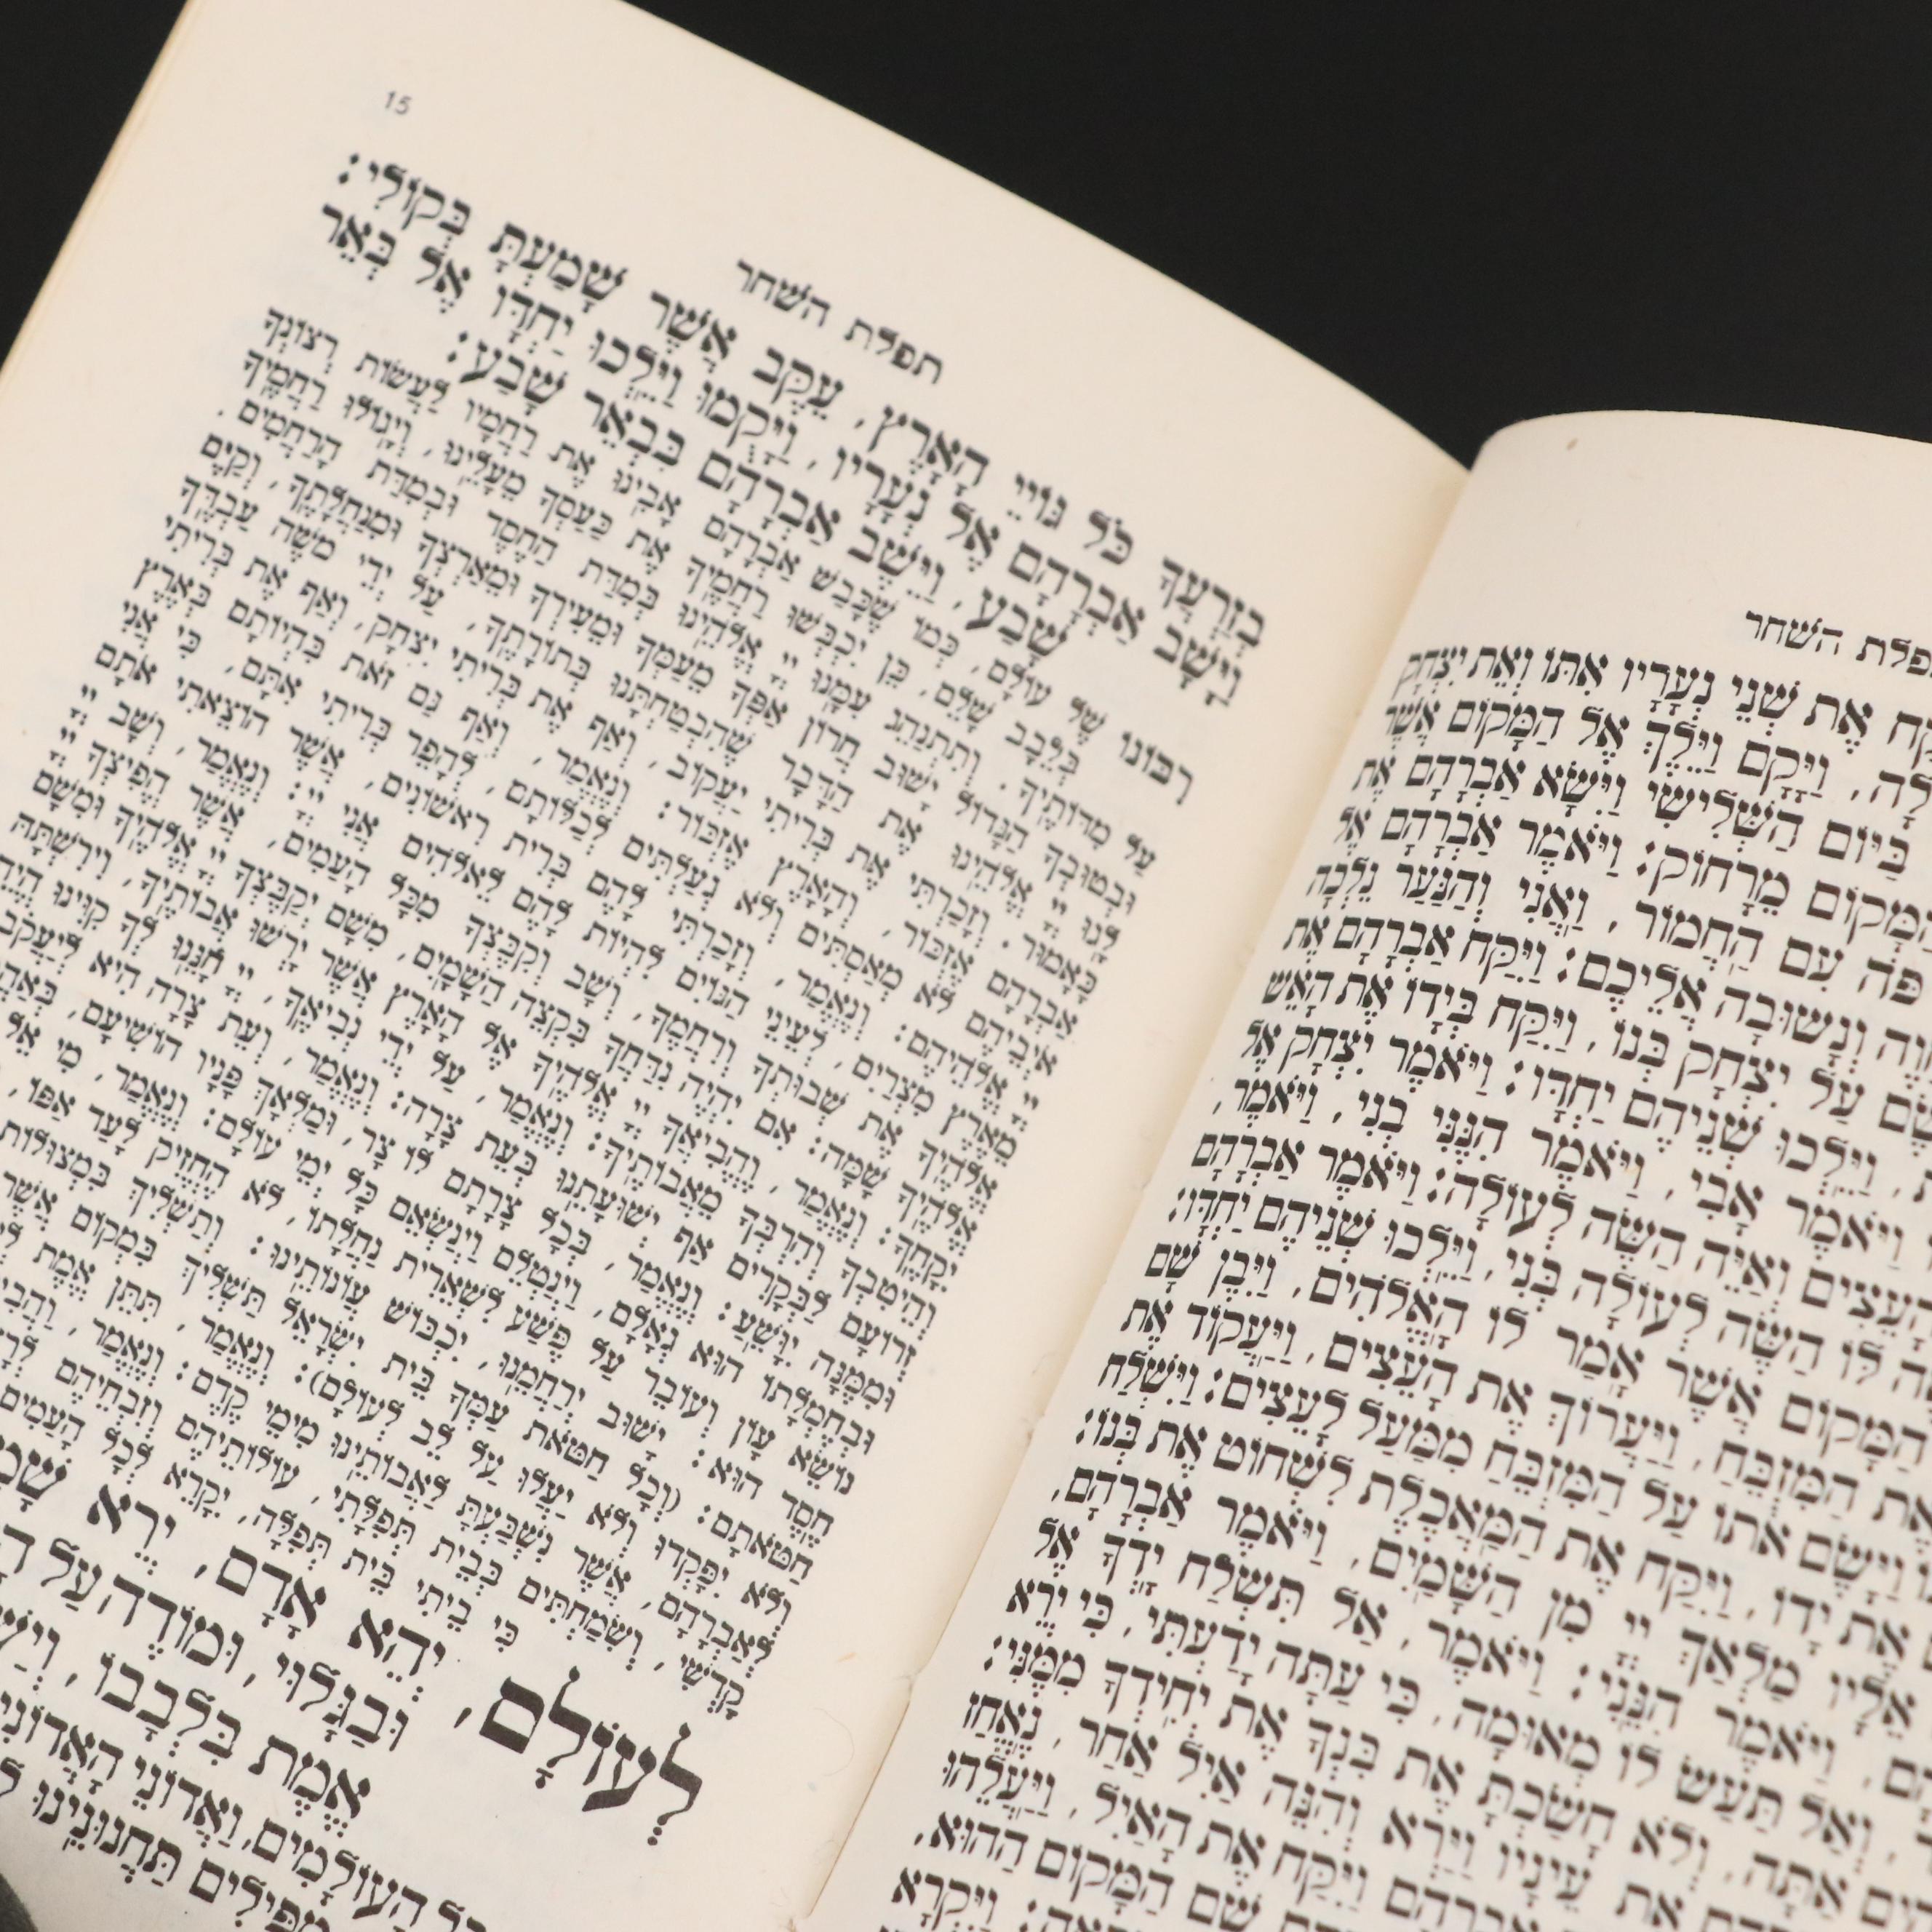 השחר
אֶת שְׁנֵי נְעָרָיו אִתּוֹ וְאֵת יִצְחָק
וַיָּקָם וַיֵּלֶךְ אֶל הַמָּקוֹם אֲשֶׁר
בַּיּוֹם הַשְּׁלִישִׁי וַיִּשָּׂא אַבְרָהָם אֶת
הַמָּקוֹם מֵרָחוֹק: וַיֹּאמֶר אַבְרָהָם אֶל
פֹּה עִם הַחֲמוֹר, וַאֲנִי וְהַנַּעַר נֵלְכָה
וְנָשׁוּבָה אֲלֵיכֶם: וַיִּקַּח אַבְרָהָם אֶת
עַל יִצְחָק בְּנוֹ, וַיִּקַּח בְּיָדוֹ אֶת הָאֵשׁ
וַיֵּלְכוּ שְׁנֵיהֶם יַחְדָּו: וַיֹּאמֶר יִצְחָק אֶל
וַיֹּאמֶר אָבִי, וַיֹּאמֶר הִנֶּנִּי בְנִי, וַיֹּאמֶר,
הָעֵצִים וְאַיֵּה הַשֶּׂה לְעוֹלָה: וַיֹּאמֶר אַבְרָהָם
לּוֹ הַשֶּׂה לְעוֹלָה בְּנִי, וַיֵּלְכוּ שְׁנֵיהֶם יַחְדָּו:
הַמָּקוֹם אֲשֶׁר אָמַר לוֹ הָאֱלֹהִים, וַיִּבֶן שָׁם
אֶת הַמִּזְבֵּחַ, וַיַּעֲרוֹךְ אֶת הָעֵצִים, וַיַּעֲקוֹד אֶת
וַיָּשֶׂם אֹתוֹ עַל הַמִּזְבֵּחַ מִמַּעַל לָעֵצִים: וַיִּשְׁלַח
אֶת יָדוֹ, וַיִּקַּח אֶת הַמַּאֲכֶלֶת לִשְׁחוֹט אֶת בְּנוֹ:
אֵלָיו מַלְאַךְ יְיָ מִן הַשָּׁמַיִם, וַיֹּאמֶר אַבְרָהָם,
וַיֹּאמֶר הִנֵּנִי: וַיֹּאמֶר, אַל תִּשְׁלַח יָדְךָ אֶל
וְאַל תַּעַשׂ לוֹ מְאוּמָה, כִּי עַתָּה יָדַעְתִּי, כִּי יְרֵא
אַתָּה, וְלֹא חָשַׂכְתָּ אֶת בִּנְךָ אֶת יְחִידְךָ מִמֶּנִּי:
אֶת עֵינָיו וַיַּרְא וְהִנֵּה אַיִל אַחַר, נֶאֱחַז
אַבְרָהָם וַיִּקַּח אֶת הָאַיִל, וַיַּעֲלֵהוּ
שֵׁם הַמָּקוֹם הַהוּא,
וַיִּקְרָא
15
תפלת השחר
בְזַרְעֲךָ כֹּל גּוֹיֵי הָאָרֶץ, עֵקֶב אֲשֶׁר שָׁמַעְתָּ בְּקוֹלִי:
וַיָּשָׁב אַבְרָהָם אֶל נְעָרָיו, וַיָּקֻמוּ וַיֵּלְכוּ יַחְדָּו אֶל בְּאֵר
שָׁבַע, וַיֵּשֶׁב אַבְרָהָם בִּבְאֵר שָׁבַע:
רִבּוֹנוֹ שֶׁל עוֹלָם, כְּמוֹ שֶׁכָּבַשׁ אַבְרָהָם אָבִינוּ אֶת רַחֲמָיו לַעֲשׂוֹת רְצוֹנְךָ
בְּלֵבָב שָׁלֵם, כֵּן יִכְבְּשׁוּ רַחֲמֶיךָ אֶת כַּעַסְךָ מֵעָלֵינוּ, וְיָגוֹלּוּ רַחֲמֶיךָ
עַל מִדּוֹתֶיךָ. וְתִתְנַהֵג עִמָּנוּ יְיָ אֱלֹהֵינוּ בְּמִדַּת הַחֶסֶד וּבְמִדַּת הָרַחֲמִים.
וּבְטוּבְךָ הַגָּדוֹל יָשׁוּב חֲרוֹן אַפְּךָ מֵעַמְּךָ וּמֵעִירְךָ וּמֵאַרְצְךָ וּמִנַּחֲלָתֶךָ, וְקַיֶּם
לָנוּ יְיָ אֱלֹהֵינוּ אֶת הַדָּבָר שֶׁהִבְטַחְתָּנוּ בְּתוֹרָתֶךָ, עַל יְדֵי מֹשֶׁה עַבְדֶּךָ
כָּאָמוּר. וְזָכַרְתִּי אֶת בְּרִיתִי יַעֲקוֹב, וְאַף אֶת בְּרִיתִי יִצְחָק, וְאַף אֶת בְּרִיתִי
אַבְרָהָם אֶזְכּוֹר, וְהָאָרֶץ אֶזְכּוֹר: וְנֶאֱמַר, וְאַף גַּם זֹאת בִּהְיוֹתָם בְּאֶרֶץ
אֹיְבֵיהֶם לֹא מְאַסְתִּים וְלֹא גְעַלְתִּים לְכַלּוֹתָם, לְהָפֵר בְּרִיתִי אִתָּם, כִּי אֲנִי
יְיָ אֱלֹהֵיהֶם: וְנֶאֱמַר, וְזָכַרְתִּי לָהֶם בְּרִית רִאשׁוֹנִים, אֲשֶׁר הוֹצֵאתִי אֹתָם
מֵאֶרֶץ מִצְרַיִם, לְעֵינֵי הַגּוֹיִם לִהְיוֹת לָהֶם לֵאלֹהִים אֲנִי יְיָ: וְנֶאֱמַר, וְשָׁב יְיָ
אֱלֹהֶיךָ אֶת שְׁבוּתְךָ וְרִחֲמֶךָ, וְשָׁב וְקִבֶּצְךָ מִכָּל הָעַמִּים, אֲשֶׁר הֱפִיצְךָ יְיָ
אֱלֹהֶיךָ שָׁמָּה: אִם יִהְיֶה נִדַּחֲךָ בִּקְצֵה הַשָּׁמָיִם, מִשָּׁם יְקַבֶּצְךָ יְיָ אֱלֹהֶיךָ וּמִשָּׁם
יִקָּחֶךָ: וְנֶאֱמַר, וֶהֱבִיאֲךָ יְיָ אֱלֹהֶיךָ אֶל הָאָרֶץ אֲשֶׁר יָרְשׁוּ אֲבוֹתֶיךָ, וִירִשְׁתָּהּ
וְהֵיטִבְךָ וְהִרְבְּךָ מֵאֲבוֹתֶיךָ: וְנֶאֱמַר, עַל יְדֵי נְבִיאֶךָ, יְיָ חָנֵּנוּ לְךָ קִוִּינוּ הֱיֵה
זְרוֹעָם לַבְּקָרִים אַף יְשׁוּעָתֵנוּ בְּעֵת צָרָה: וְנֶאֱמַר, וְעֵת צָרָה הִיא לְיַעֲקֹב
וּמִמֶּנָּה יִוָּשֵׁעַ: וְנֶאֱמַר, בְּכָל צָרָתָם לוֹ צָר, וּמַלְאַךְ פָּנָיו הוֹשִׁיעָם,
וּבְחֶמְלָתוֹ הוּא גְאָלָם, וַיְנַטְּלֵם וַיְנַשְּׂאֵם כָּל יְמֵי עוֹלָם: וְנֶאֱמַר, מִי אֵל
נוֹשֵׂא עָוֹן וְעוֹבֵר עַל פֶּשַׁע לִשְׁאֵרִית נַחֲלָתוֹ, לֹא הֶחֱזִיק לָעַד אַפּוֹ,
חֶסֶד הוּא: יָשׁוּב יְרַחֲמֵנוּ, יִכְבּוֹשׁ עֲוֹנוֹתֵינוּ: וְתַשְׁלִיךְ בִּמְצוּלוֹת
חַטֹּאתָם: (וְכָל חַטֹּאת עַמְּךָ בֵּית יִשְׂרָאֵל תַּשְׁלִיךְ בִּמְקוֹם אֲשֶׁר
וְלֹא יִפָּקְדוּ וְלֹא יַעֲלוּ עַל לֵב לְעוֹלָם): וְנֶאֱמַר, תִּתֵּן אֱמֶת
לְאַבְרָהָם, אֲשֶׁר נִשְׁבַּעְתָּ לַאֲבוֹתֵינוּ מִימֵי קֶדֶם: וְנֶאֱמַר,
קָדְשִׁי, וְשִׂמַּחְתִּים בְּבֵית תְּפִלָּתִי, עוֹלוֹתֵיהֶם וְזִבְחֵיהֶם
כִּי בֵיתִי בֵּית תְּפִלָּה, יִקָּרֵא לְכָל הָעַמִּים
לְעוֹלָם, יְהֵא אָדָם, יְרֵא
וּבַגָּלוּי, וּמוֹדֶה עַל
אֱמֶת בִּלְבָבוֹ,
הָעוֹלָמִים, וַאֲדוֹנֵי הָאֲדוֹנִים
מַפִּילִים תַּחֲנוּנֵינוּ